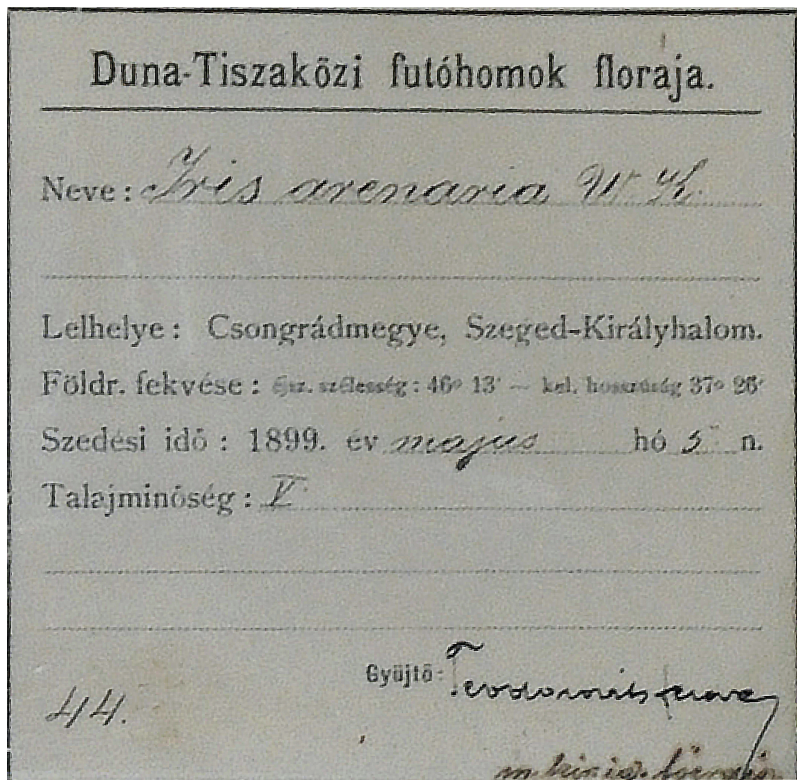 Duna-Tiszaközi futóhomok floraja.
Neve: Iris arenaria W. K.
Lelhelye: Csongrádmegye, Szeged-Királyhalom.
Földr. fekvése: ész. szélesség: 46° 13' — kel. hosszúság 37° 26'
Szedési idő: 1899. év majus hó 5 n.
Talajminőség: V.
Gyüjtő:
44.
m. kir.